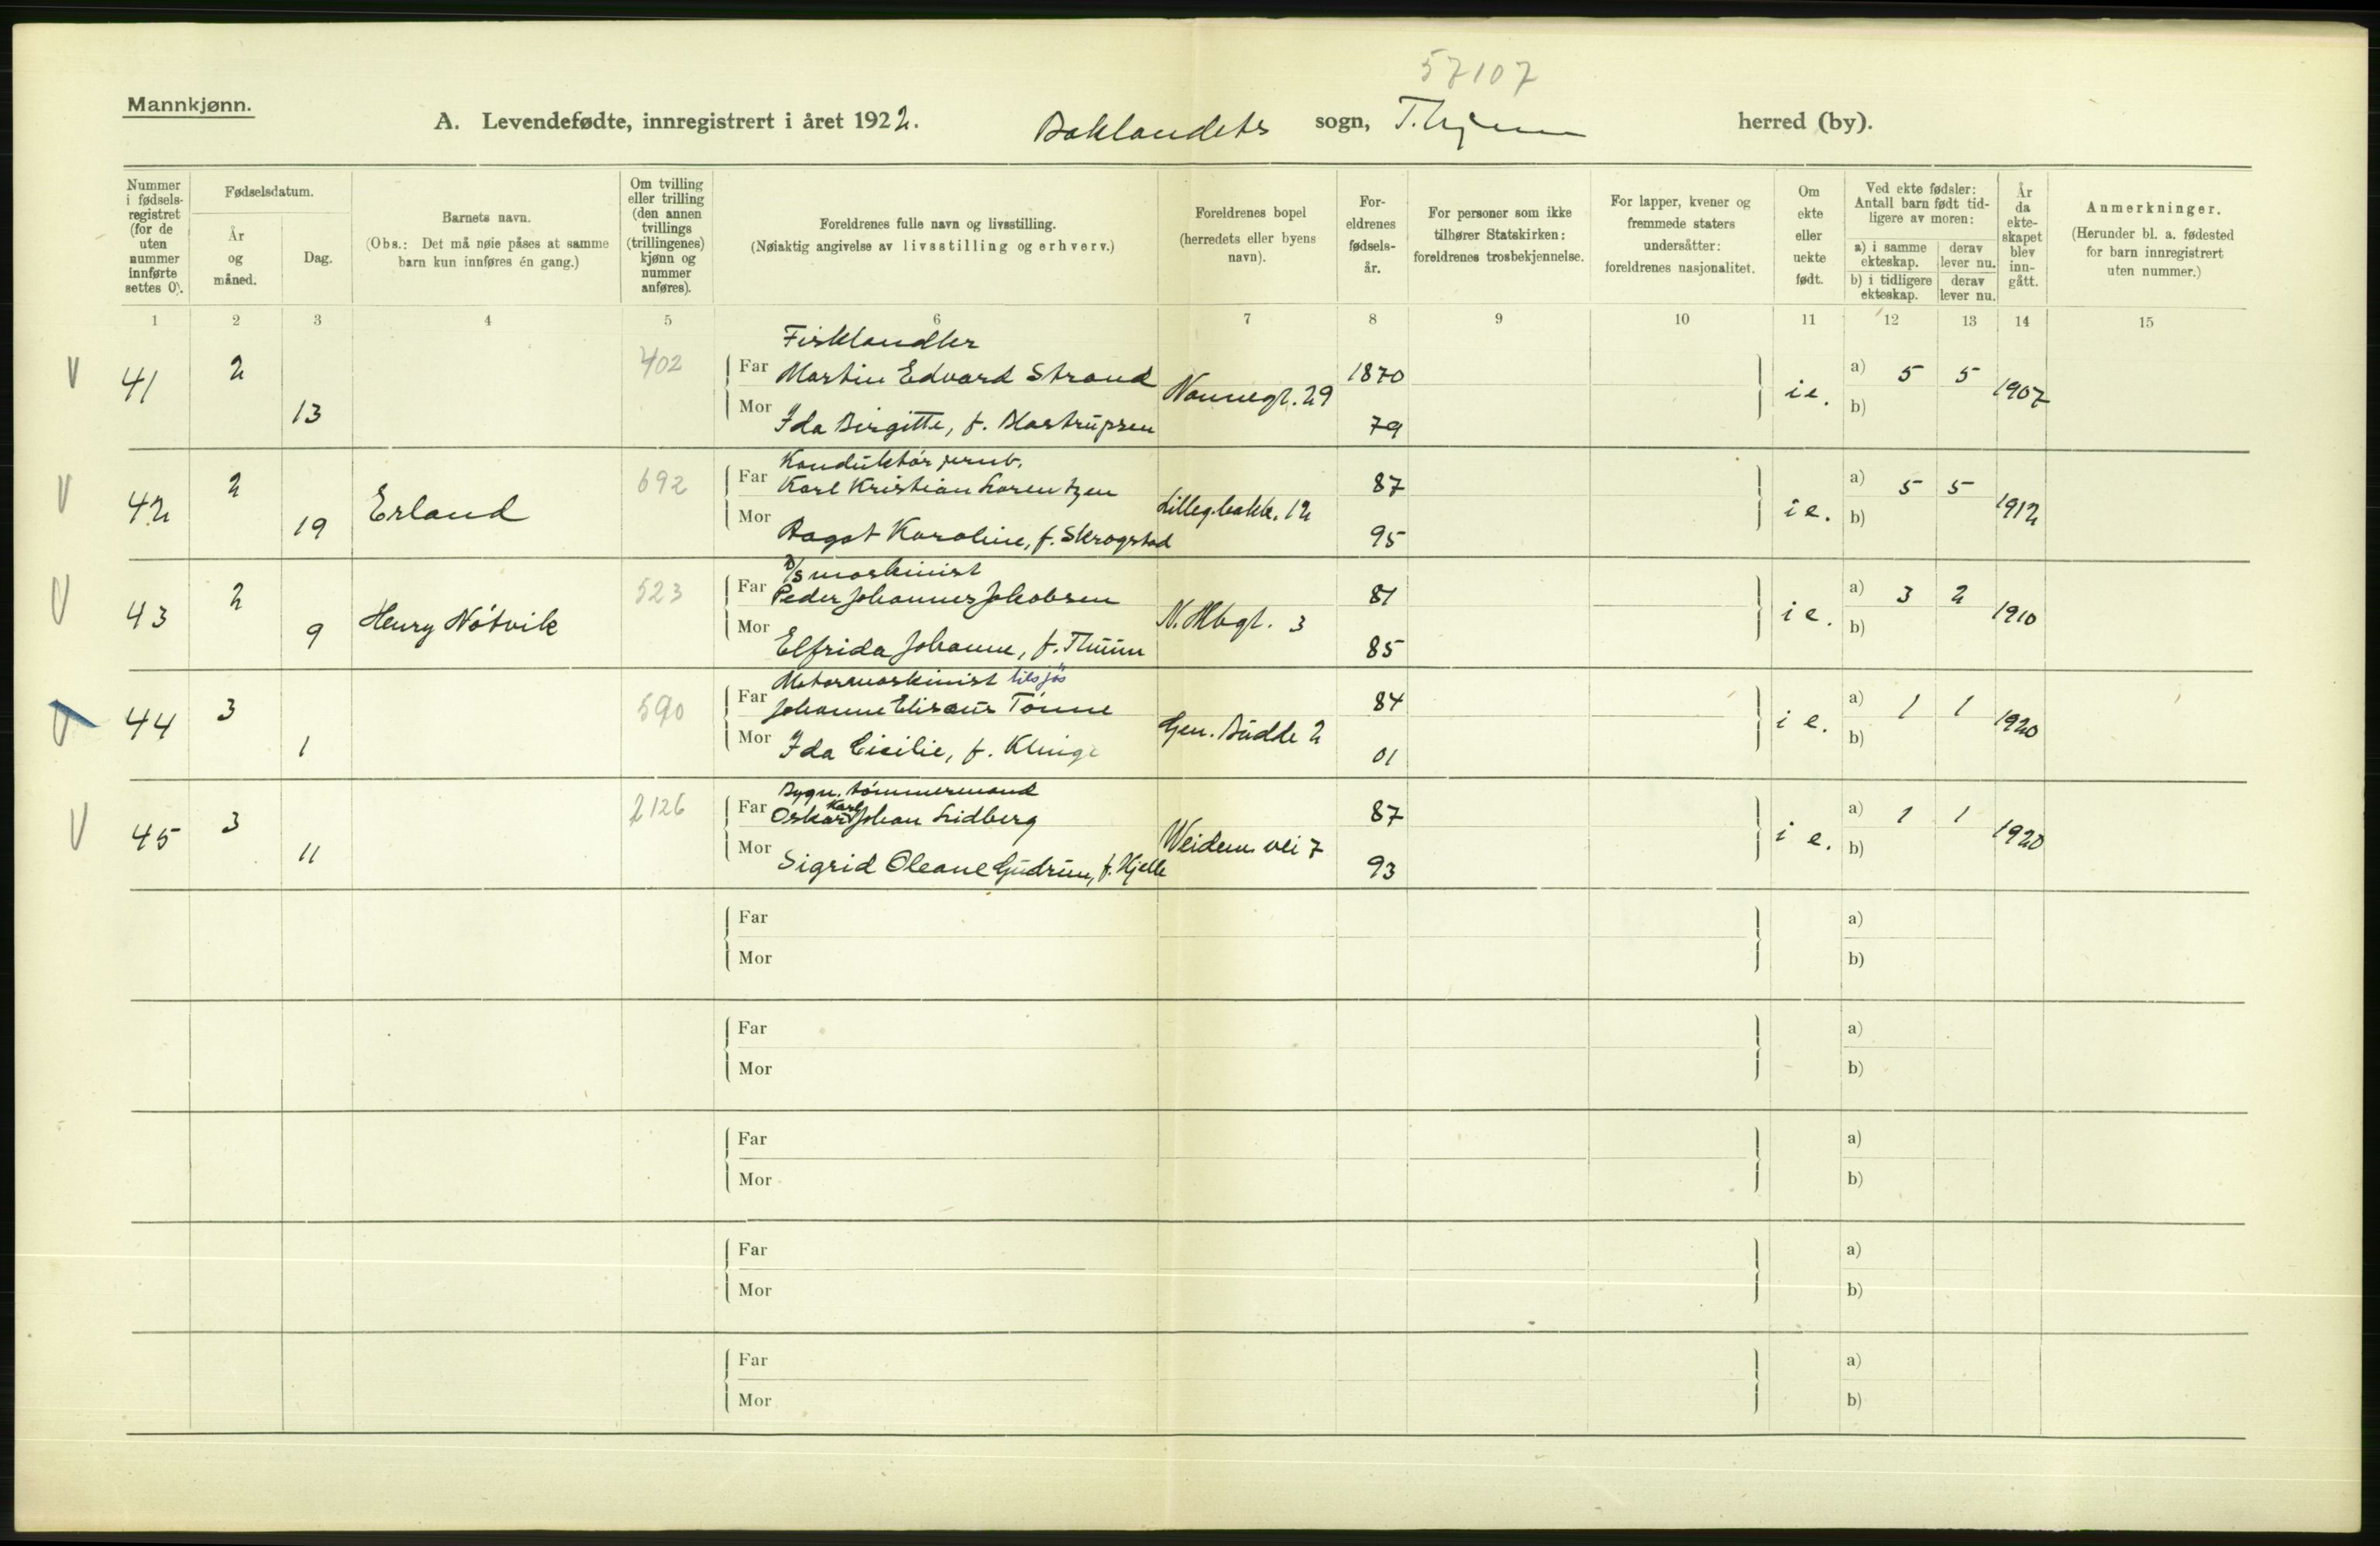 57107
Mannkjønn.
A. Levendefødte, innregistrert i året 1922. Baklandets sogn, T.hjem herred (by).
Nummer i fødsels-registret (for de uten nummer innførte settes 0).
Fødselsdatum.
År og måned.
Dag.
Barnets navn.
(Obs.: Det må nøie påses at samme barn kun innføres én gang.)
Om tvilling eller trilling (den annen tvillings (trillingenes) kjønn og nummer anføres).
Foreldrenes fulle navn og livsstilling.
(Nøiaktig angivelse av livsstilling og erhverv.)
Foreldrenes bopel (herredets eller byens navn).
For-eldrenes fødsels-år.
For personer som ikke tilhører Statskirken: foreldrenes trosbekjennelse.
For lapper, kvener og fremmede staters undersåtter: foreldrenes nasjonalitet.
Om ekte eller uekte født.
Ved ekte fødsler: Antall barn født tid-ligere av moren:
a) i samme ekteskap.
derav lever nu.
b) i tidligere ekteskap.
derav lever nu.
År da ekte-skapet blev inn-gått.
Anmerkninger.
(Herunder bl. a. fødested for barn innregistrert uten nummer.)
1 2 3 4 5 6 7 8 9 10 11 12 13 14 15
Fiskhandler
V 41 2 402 Far Martin Edvard Strand 1870 a) 5 5
13 Mor Ida Birgitte, f. Nonnegt. 29 79 i e. b) 1907
Konduktør jernb.
V 42 2 692 Far Karl Kristian Lorentzen 87 a) 5 5
19 Erland Mor Karoline, f. Skrogstad Lillegbakk. 12 95 i e. b) 1912
D/S maskinist
V 43 2 523 Far Peder Johannes Jakobsen 81 a) 3 2
9 Henry Nótvik Mor Elfrida Johanne, f. N. 3 85 i e. b) 1910
Motormaskinist tilsjøs
V 44 3 590 Far Johanne Elisæus Tønne 84 a) 1 1
1 Mor Ida Cicilie, f. Klinge Gen. Budde 2 01 i e. b) 1920
Bygn. tømmermand
V 45 3 2126 Far Oskar Karl Johan Lidberg 87 a) 1 1
11 Mor Sigrid Oleane Gudrun, f. Hjelle Weidem. vei 7 93 i e. b) 1920
Far a)
Mor b)
Far a)
Mor b)
Far a)
Mor b)
Far a)
Mor b)
Far a)
Mor b)